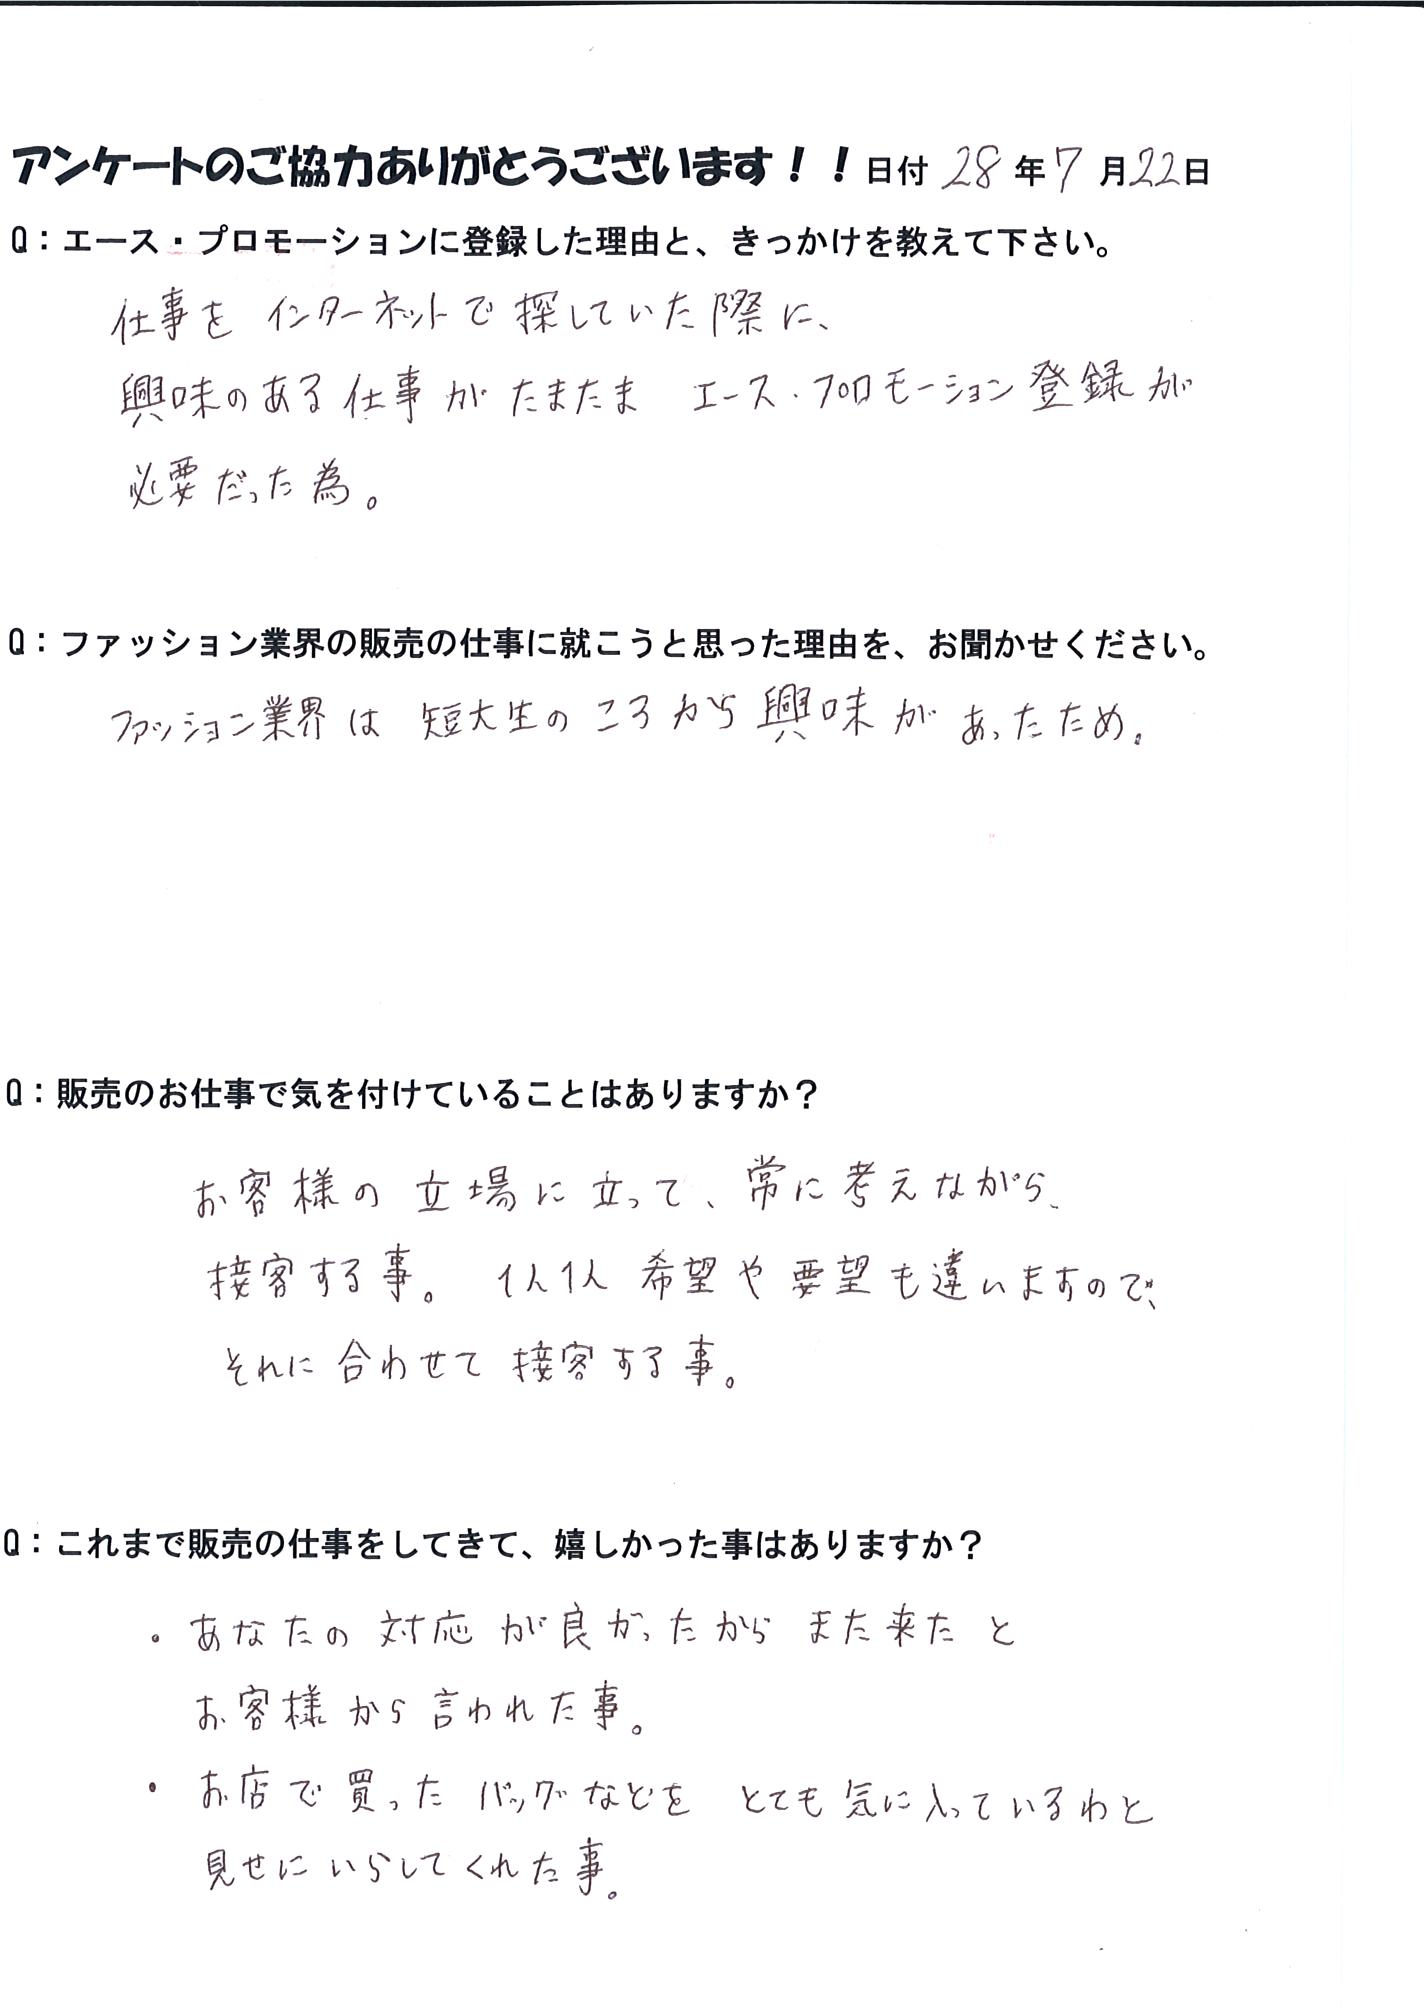 アンケートのご協力ありがとうございます！！日付 28 年 7 月 22 日
Q：エース・プロモーションに登録した理由と、きっかけを教えて下さい。
仕事を インターネットで 探していた際に、
興味のある仕事がたまたま エース・プロモーション登録が
必要だった為。
Q：ファッション業界の販売の仕事に就こうと思った理由を、お聞かせください。
ファッション業界は 短大生のころから興味があったため。
Q：販売のお仕事で気を付けていることはありますか？
お客様の立場に立って、常に考えながら、
接客する事。 1人1人 希望や要望も違いますので、
それに合わせて接客する事。
Q：これまで販売の仕事をしてきて、嬉しかった事はありますか？
・あなたの対応が良かったから また来たと
お客様から言われた事。
・お店で買った バッグなどを とても気に入っているわと
見せにいらしてくれた事。